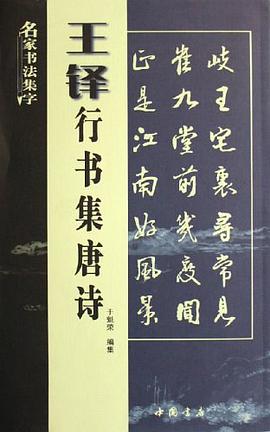 名家书法集字
王铎
行书集唐诗
于魁荣 编集
岐王宅裏尋常見
崔九堂前幾度聞
正是江南好風景
中國書店